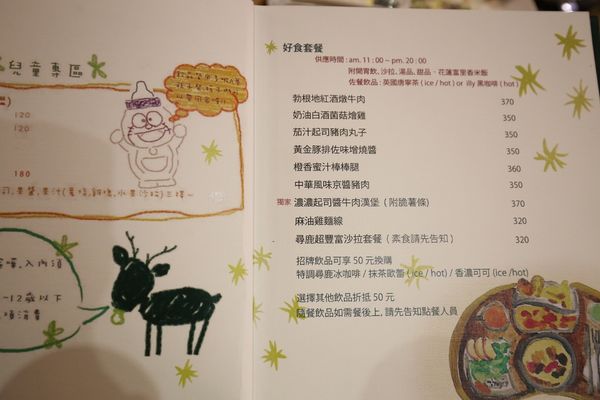 兒童專區
120
120
180
好食套餐
供應時間 : am. 11 : 00 ~ pm. 20 : 00
附開胃飲, 沙拉, 湯品, 甜品、花蓮富里香米飯
佐餐飲品 : 英國唐寧茶 ( ice / hot ) or illy 黑咖啡 ( hot )
勃根地紅酒燉牛肉 370
奶油白酒菌菇燴雞 350
茄汁起司豬肉丸子 350
黃金豚排佐味增燒醬 350
橙香蜜汁棒棒腿 360
中華風味京醬豬肉 350
獨家 濃濃起司醬牛肉漢堡 ( 附脆薯條 ) 370
麻油雞麵線 320
尋鹿超豐富沙拉套餐 ( 素食請先告知 ) 320
招牌飲品可享 50 元換購
特調尋鹿冰咖啡 / 抹茶歐蕾 ( ice / hot ) / 香濃可可 ( ice /hot )
選擇其他飲品折抵 50 元
隨餐飲品如需餐後上, 請先告知點餐人員